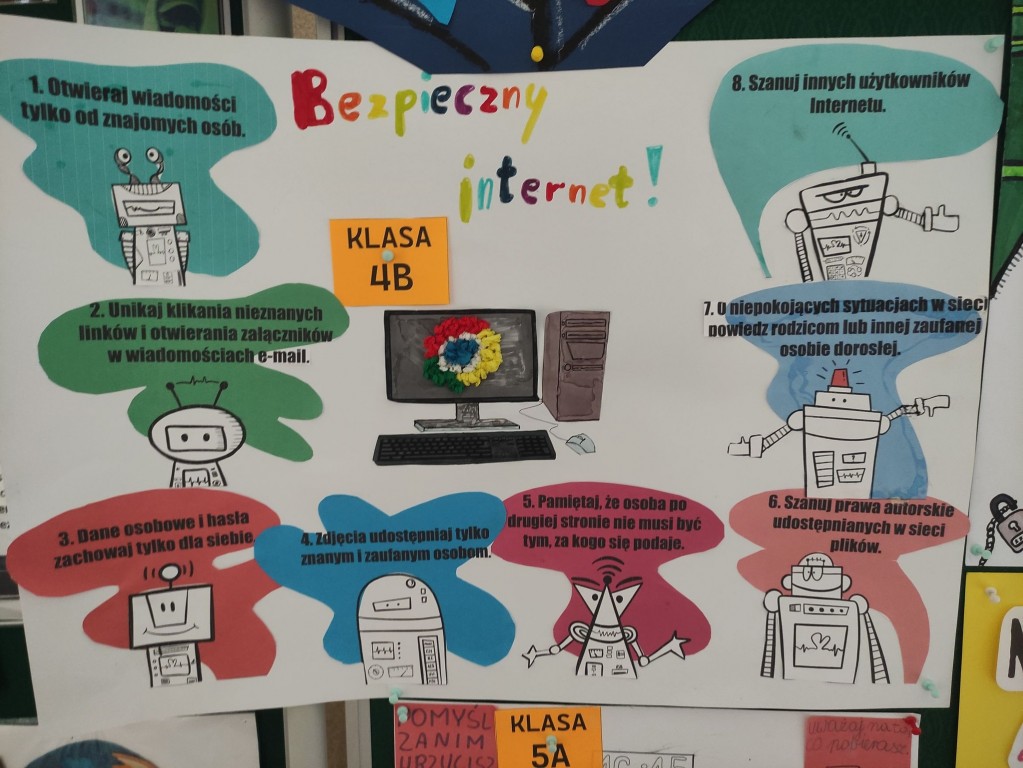 Bezpieczny
internet!
KLASA
4B
1. Otwieraj wiadomości
tylko od znajomych osób.
2. Unikaj klikania nieznanych
linków i otwierania załączników
w wiadomościach e-mail.
3. Dane osobowe i hasła
zachowaj tylko dla siebie.
4. Zdjęcia udostępniaj tylko
znanym i zaufanym osobom.
5. Pamiętaj, że osoba po
drugiej stronie nie musi być
tym, za kogo się podaje.
6. Szanuj prawa autorskie
udostępnianych w sieci
plików.
7. O niepokojących sytuacjach w sieci
powiedz rodzicom lub innej zaufanej
osobie dorosłej.
8. Szanuj innych użytkowników
Internetu.
POMYŚL
ZANIM
KLASA
5A
uważaj na to
co pobierasz